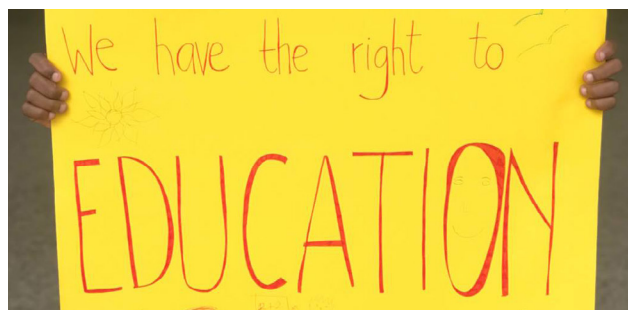 We have the right to
EDUCATION